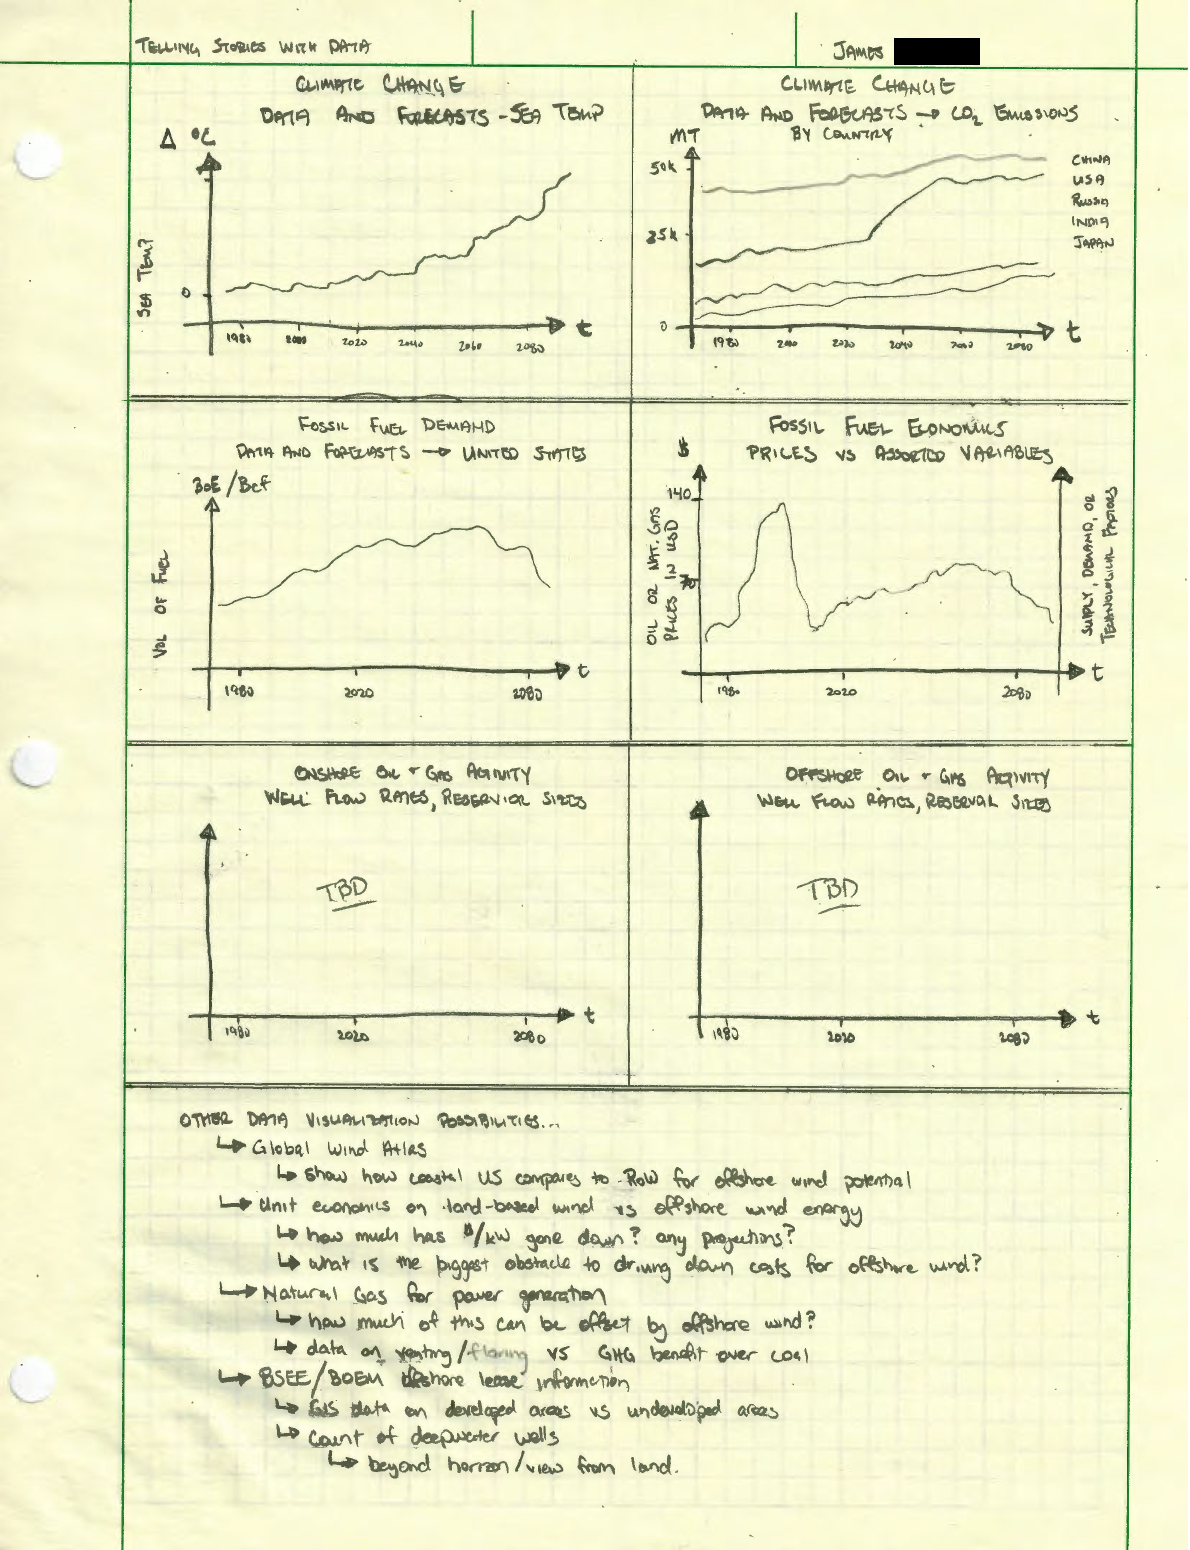 TELLING STORIES WITH DATA
JAMES
CLIMATE CHANGE
DATA AND FORECASTS - SEA TEMP
Δ °C
SEA TEMP
0
1980 2000 2020 2040 2060 2080
t
CLIMATE CHANGE
DATA AND FORECASTS → CO2 EMISSIONS
BY COUNTRY
MT
50k
25k
0
CHINA
USA
RUSSIA
INDIA
JAPAN
1980 2000 2020 2040 2060 2080
t
FOSSIL FUEL DEMAND
DATA AND FORECASTS → UNITED STATES
BOE/Bcf
VOL OF FUEL
1980 2020 2080
t
FOSSIL FUEL ECONOMICS
PRICES VS ASSORTED VARIABLES
$
140
70
OIL OR NAT. GAS
PRICES IN USD
SUPPLY, DEMAND, OR
TECHNOLOGICAL FACTORS
1980 2020 2080
t
ONSHORE OIL + GAS ACTIVITY
WELL FLOW RATES, RESERVIOR SIZES
TBD
1980 2020 2080
t
OFFSHORE OIL + GAS ACTIVITY
WELL FLOW RATES, SIZES
TBD
1980 2020 2080
t
OTHER DATA VISUALIZATION POSSIBILITIES...
↳ Global Wind Atlas
↳ show how coastal US compares to RoW for offshore wind potential
↳ Unit economics on land-based wind vs offshore wind energy
↳ how much has $/kW gone down? any projections?
↳ what is the biggest obstacle to driving down costs for offshore wind?
↳ Natural Gas for power generation
↳ how much of this can be offset by offshore wind?
↳ data on venting/flaring vs GHG benefit over coal
↳ BSEE/BOEM offshore lease information
↳ GIS data on developed areas vs undeveloped areas
↳ count of deepwater wells
↳ beyond horizon/view from land.